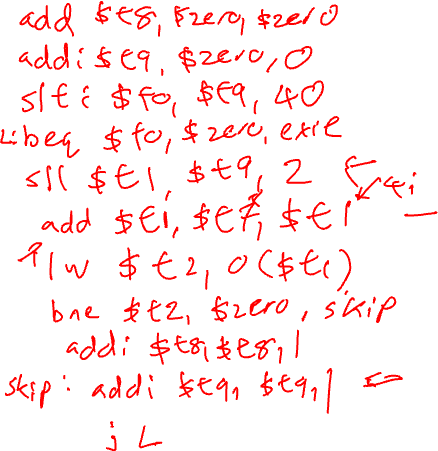 add $t8, $zero, $zero
addi $t9, $zero, 0
slti $t0, $t9, 40
L: beq $t0, $zero, exit
sll $t1, $t9, 2
4i
add $t1, $t7, $t1
lw $t2, 0($t1)
bne $t2, $zero, skip
addi $t8, $t8, 1
skip: addi $t9, $t9, 1
j L